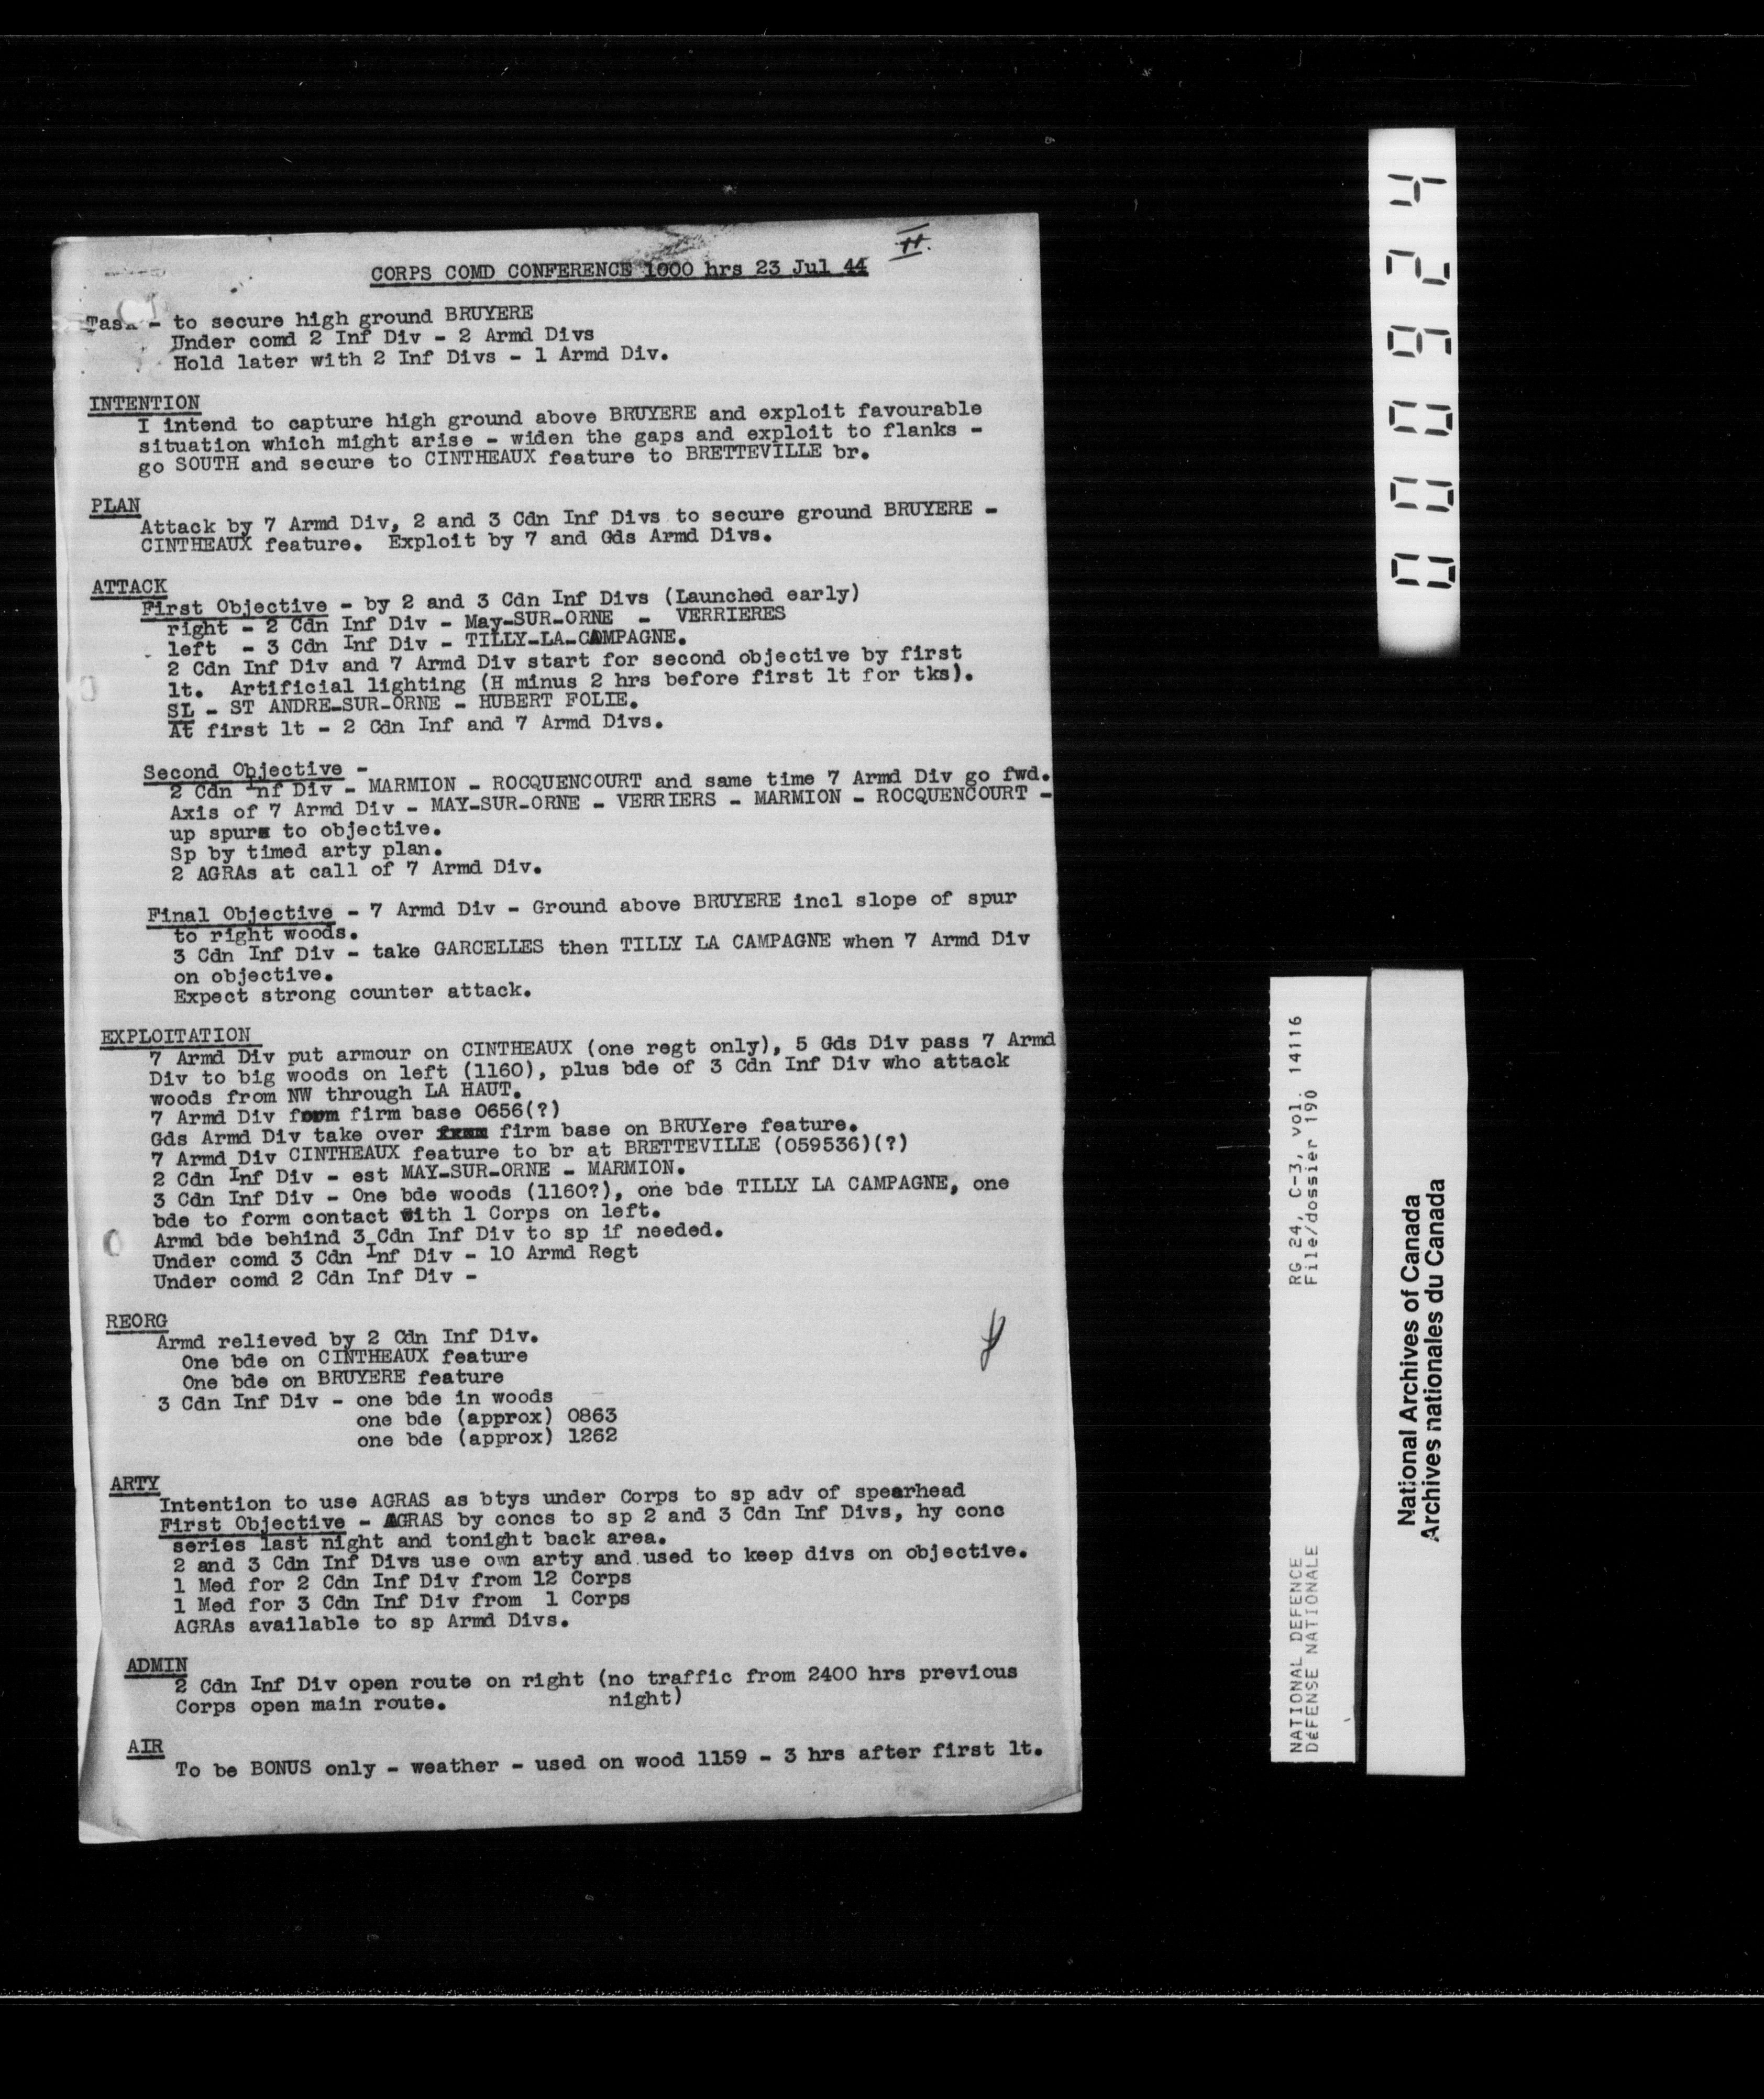 II.
CORPS COMD CONFERENCE 1000 hrs 23 Jul 44
Task - to secure high ground BRUYERE
Under comd 2 Inf Div - 2 Armd Divs
Hold later with 2 Inf Divs - 1 Armd Div.
INTENTION
I intend to capture high ground above BRUYERE and exploit favourable
situation which might arise - widen the gaps and exploit to flanks -
go SOUTH and secure to CINTHEAUX feature to BRETTEVILLE br.
PLAN
Attack by 7 Armd Div, 2 and 3 Cdn Inf Divs to secure ground BRUYERE -
CINTHEAUX feature. Exploit by 7 and Gds Armd Divs.
ATTACK
First Objective - by 2 and 3 Cdn Inf Divs (Launched early)
right - 2 Cdn Inf Div - May-SUR-ORNE - VERRIERES
left - 3 Cdn Inf Div - TILLY-LA-CAMPAGNE.
2 Cdn Inf Div and 7 Armd Div start for second objective by first
lt. Artificial lighting (H minus 2 hrs before first lt for tks).
SL - ST ANDRE-SUR-ORNE - HUBERT FOLIE.
At first lt - 2 Cdn Inf and 7 Armd Divs.
Second Objective -
2 Cdn Inf Div - MARMION - ROCQUENCOURT and same time 7 Armd Div go fwd.
Axis of 7 Armd Div - MAY-SUR-ORNE - VERRIERS - MARMION - ROCQUENCOURT -
up spurs to objective.
Sp by timed arty plan.
2 AGRAs at call of 7 Armd Div.
Final Objective - 7 Armd Div - Ground above BRUYERE incl slope of spur
to right woods.
3 Cdn Inf Div - take GARCELLES then TILLY LA CAMPAGNE when 7 Armd Div
on objective.
Expect strong counter attack.
EXPLOITATION
7 Armd Div put armour on CINTHEAUX (one regt only), 5 Gds Div pass 7 Armd
Div to big woods on left (1160), plus bde of 3 Cdn Inf Div who attack
woods from NW through LA HAUT.
7 Armd Div form firm base 0656(?)
Gds Armd Div take over firm base on BRUYere feature.
7 Armd Div CINTHEAUX feature to br at BRETTEVILLE (059536)(?)
2 Cdn Inf Div - est MAY-SUR-ORNE - MARMION.
3 Cdn Inf Div - One bde woods (1160?), one bde TILLY LA CAMPAGNE, one
bde to form contact with 1 Corps on left.
Armd bde behind 3 Cdn Inf Div to sp if needed.
Under comd 3 Cdn Inf Div - 10 Armd Regt
Under comd 2 Cdn Inf Div -
REORG
Armd relieved by 2 Cdn Inf Div.
One bde on CINTHEAUX feature
One bde on BRUYERE feature
3 Cdn Inf Div - one bde in woods
one bde (approx) 0863
one bde (approx) 1262
ARTY
Intention to use AGRAS as btys under Corps to sp adv of spearhead
First Objective - AGRAS by concs to sp 2 and 3 Cdn Inf Divs, hy conc
series last night and tonight back area.
2 and 3 Cdn Inf Divs use own arty and used to keep divs on objective.
1 Med for 2 Cdn Inf Div from 12 Corps
1 Med for 3 Cdn Inf Div from 1 Corps
AGRAs available to sp Armd Divs.
ADMIN
2 Cdn Inf Div open route on right (no traffic from 2400 hrs previous
Corps open main route. night)
AIR
To be BONUS only - weather - used on wood 1159 - 3 hrs after first lt.
000924
NATIONAL DEFENCE RG 24, C-3, vol. 14116
DéFENSE NATIONALE File/dossier 190
National Archives of Canada
Archives nationales du Canada